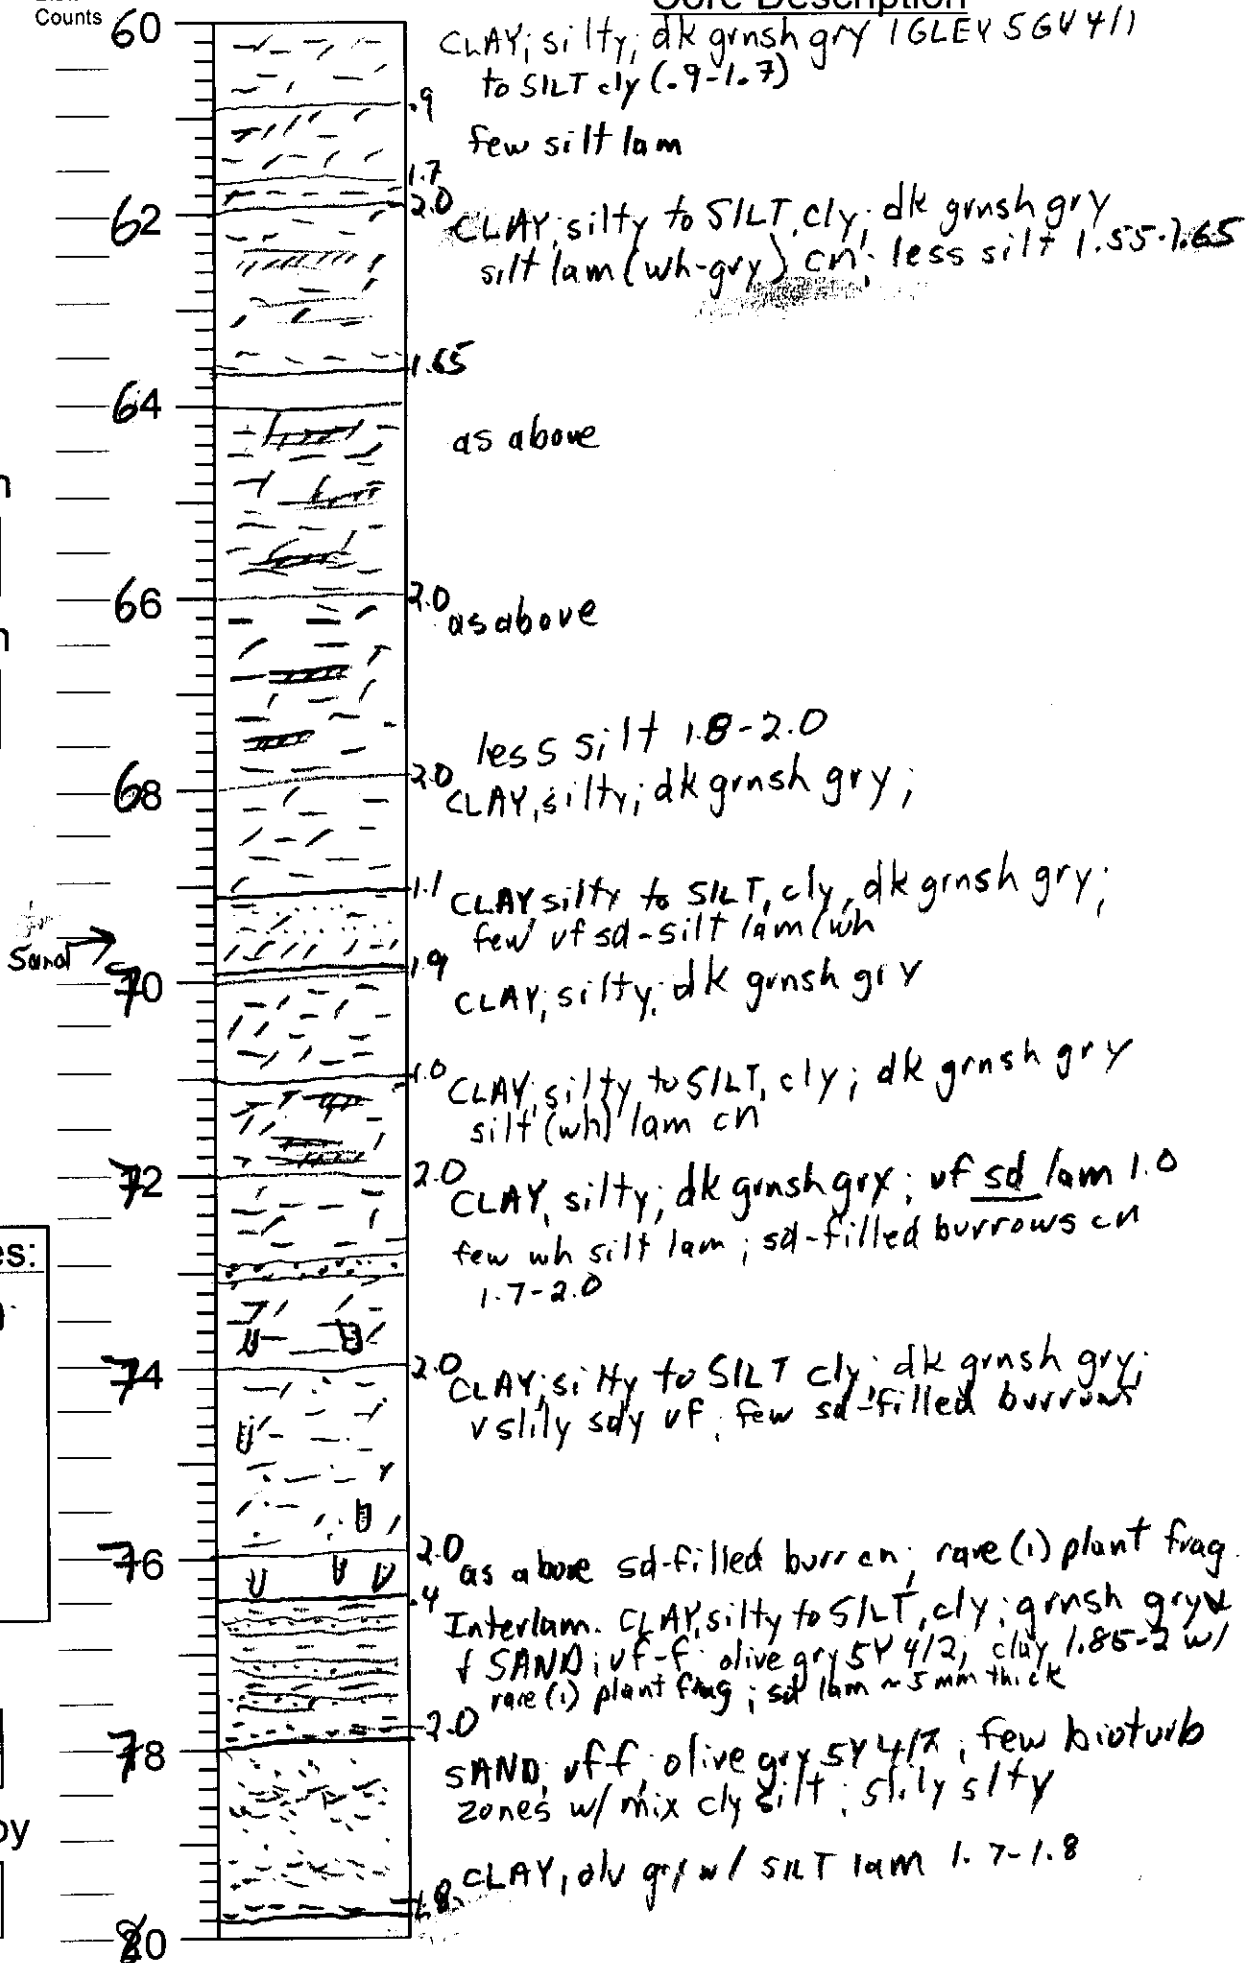 Counts
Core Description
60
CLAY; silty; dk grnsh gry 1GLEY 5GY 4/1
to SILT cly (.9-1.7)
.9
few silt lam
1.7
2.0
62
CLAY, silty to SILT, cly; dk grnsh gry
silt lam (wh-gry) cn; less silt 1.55-1.65
1.65
64
as above
66
2.0
as above
less silt 1.8-2.0
68
2.0
CLAY, silty; dk grnsh gry;
1.1
CLAY silty to SILT, cly, dk grnsh gry;
few vf sd-silt lam (wh
Sand
1.9
70
CLAY, silty; dk grnsh gry
1.0
CLAY, silty, to SILT, cly; dk grnsh gry
silt (wh) lam cn
72
2.0
CLAY, silty; dk grnsh gry; vf sd lam 1.0
few wh silt lam; sd-filled burrows cn
1.7-2.0
es:
74
2.0
CLAY; silty to SILT cly; dk grnsh gry;
v slily sdy vf; few sd-filled burrows
76
2.0
as above sd-filled burr cn; rare (1) plant frag.
.4
Interlam. CLAY, silty to SILT, cly; grnsh gry
& SAND; vf-f; olive gry 5Y 4/2; clay 1.85-2 w/
rare (1) plant frag; sd lam ~ 5 mm thick
2.0
78
SAND, vf f, olive gry 5Y 4/2, few bioturb
zones w/ mix cly silt; slily slty
oy
CLAY, olv gry w/ SILT lam 1.7-1.8
1.8
80